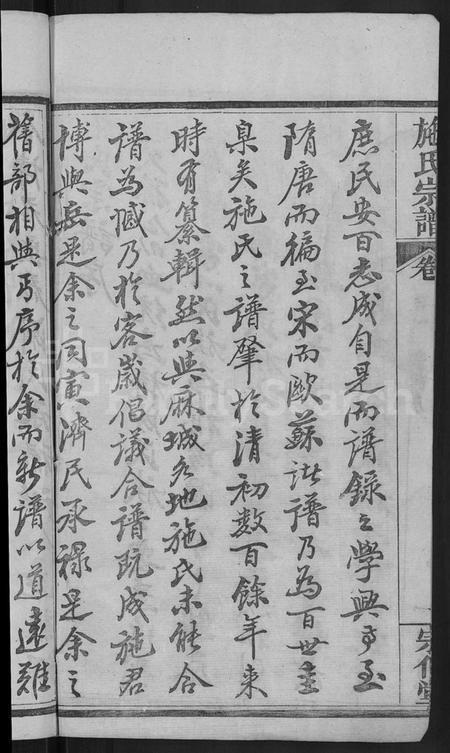 施氏宗譜
卷
庶民安百志成自是而譜錄之學興焉至
隋唐而徧至宋而歐蘇諸譜乃為百世圭
臬矣施氏之譜肇於清初數百餘年來
時有纂輯然以與麻城各地施氏未能合
譜為憾乃於客歲倡議合譜既成施君
博與岳是余之同寅濟民承祿是余之
舊部相與丐序於余而新譜以道遠難